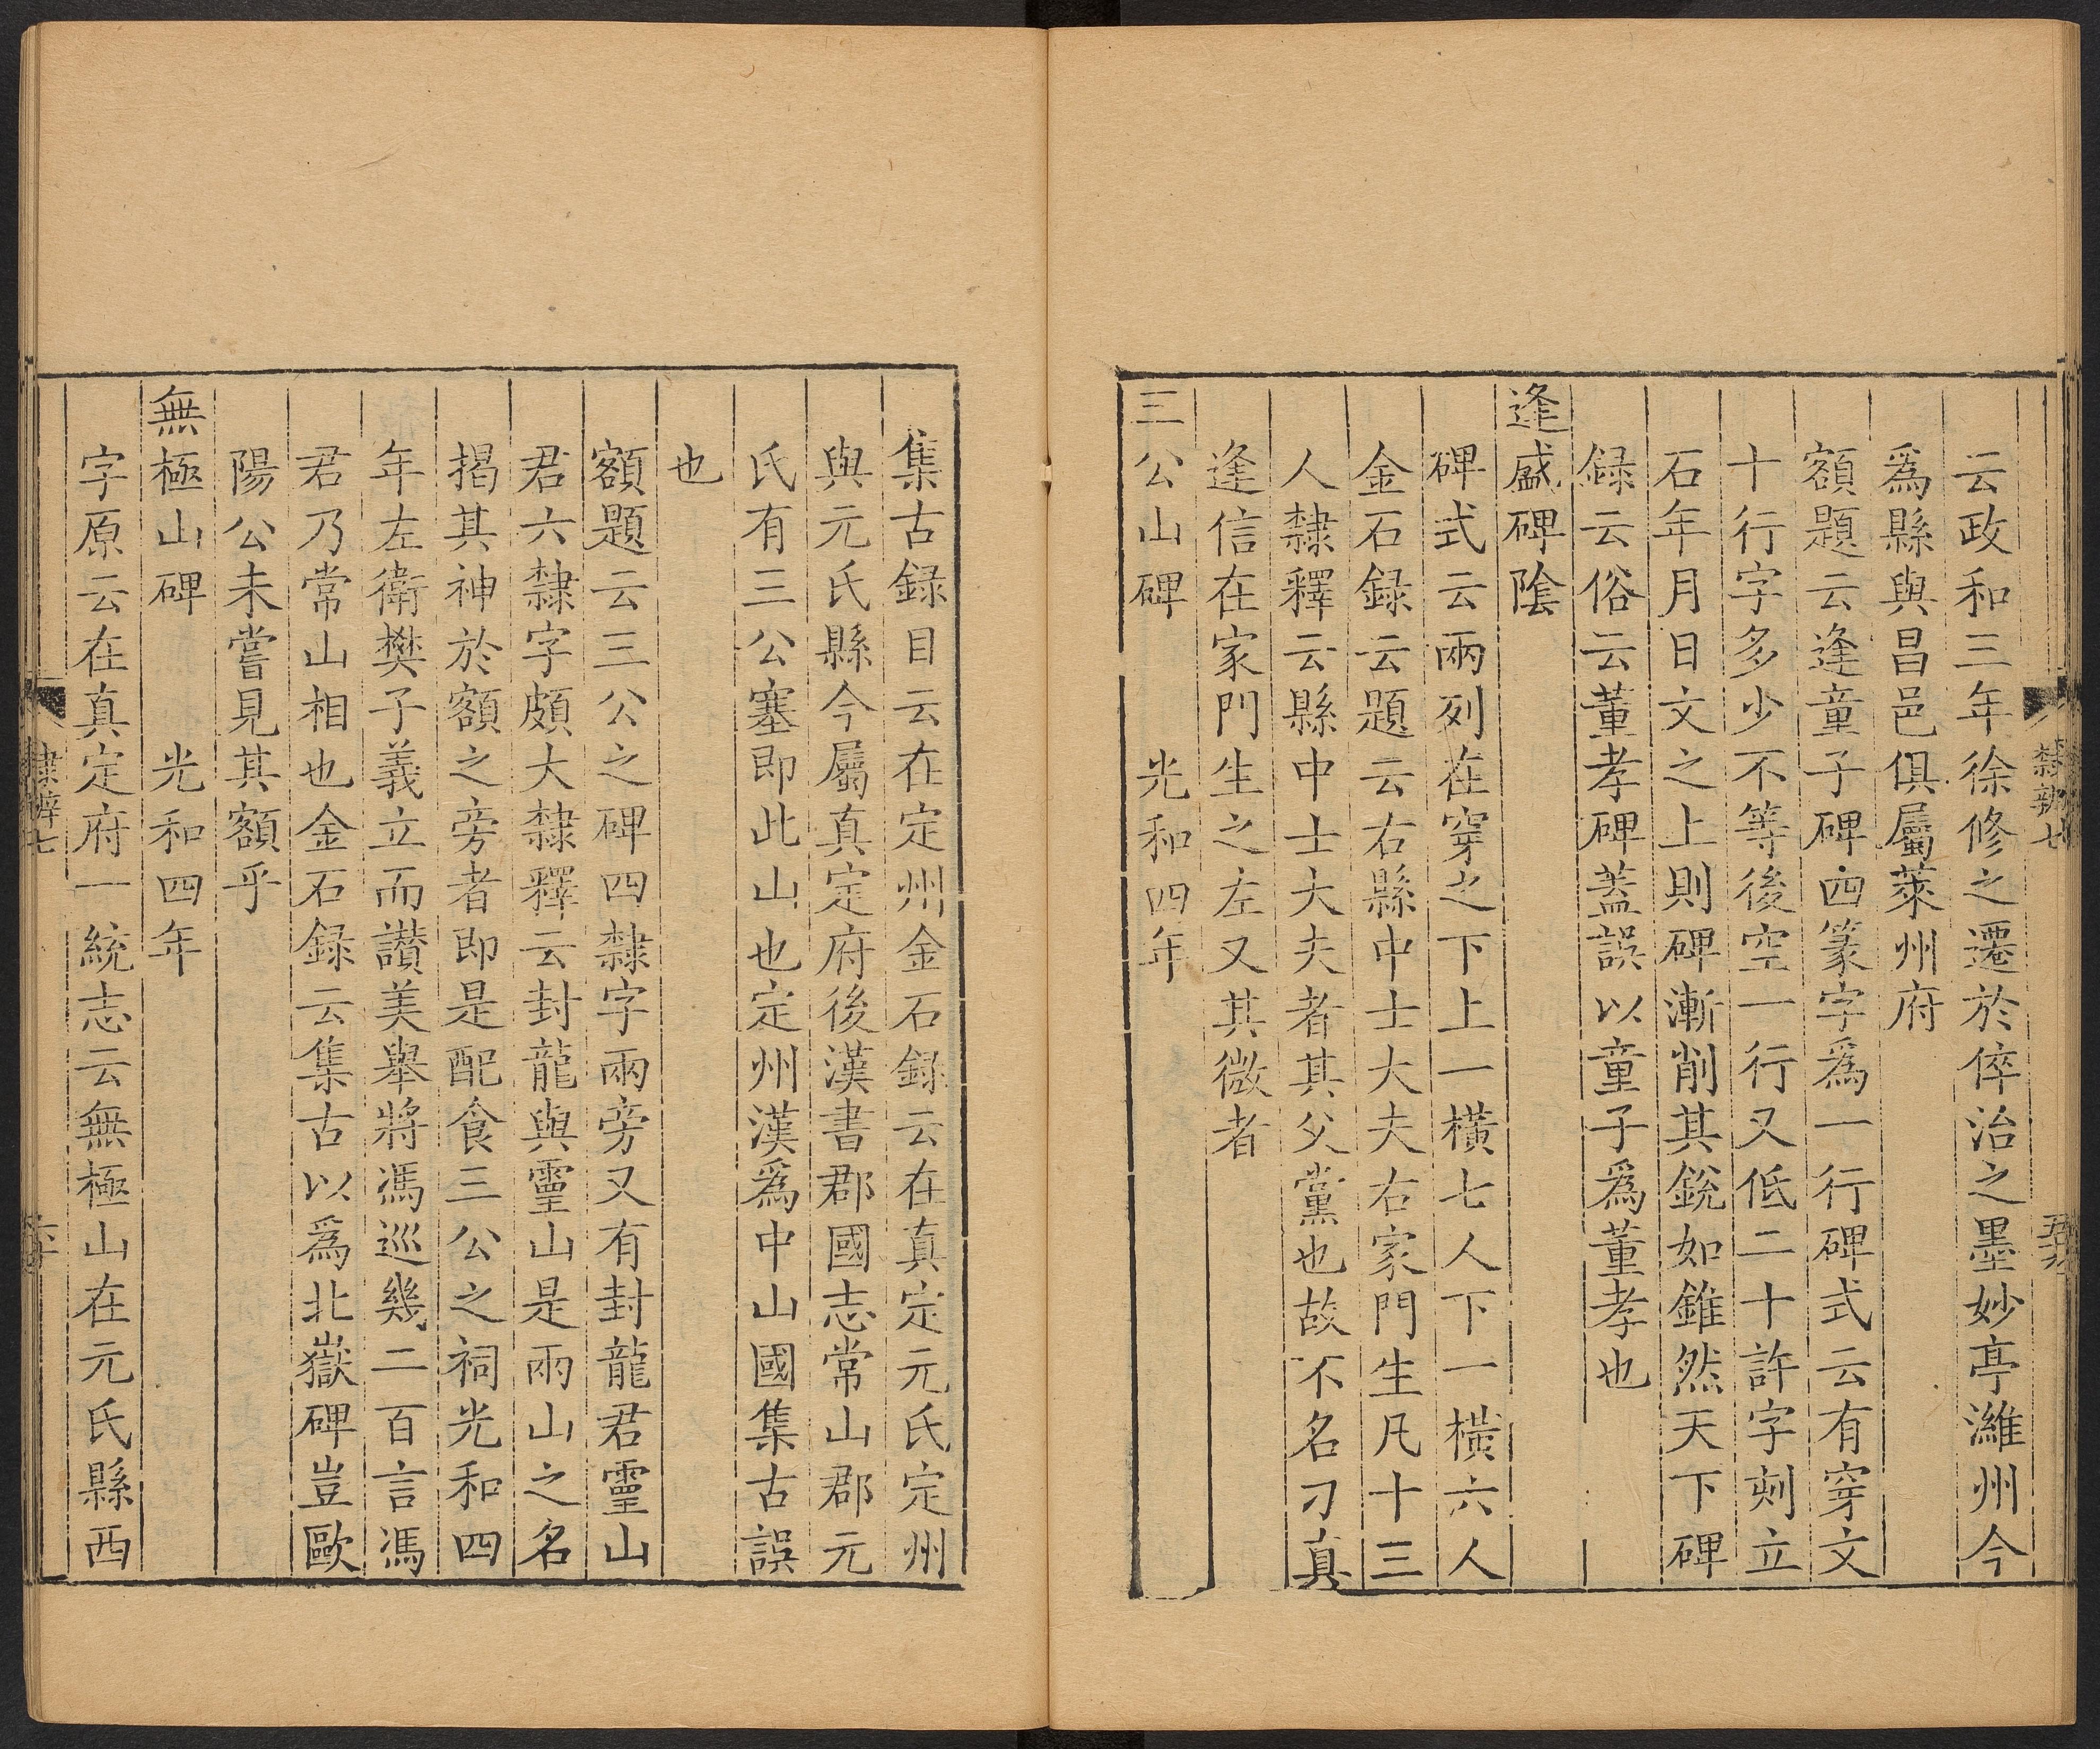 云政和三年徐修之遷於倅治之墨妙亭濰州今
爲縣與昌邑俱屬萊州府
額題云逢童子碑四篆字爲一行碑式云有穿文
十行字多少不等後空一行又低二十許字刻立
石年月日文之上則碑漸削其銳如錐然天下碑
録云俗云董孝碑蓋誤以童子爲董孝也
逢盛碑陰
碑式云兩列在穿之下上一橫七人下一橫六人
金石録云題云右縣中士大夫右家門生凡十三
人隸釋云縣中士大夫者其父黨也故不名刁真
逢信在家門生之左又其微者
三公山碑 光和四年
集古録目云在定州金石録云在真定元氏定州
與元氏縣今屬真定府後漢書郡國志常山郡元
氏有三公塞即此山也定州漢爲中山國集古誤
也
額題云三公之碑四隸字兩旁又有封龍君靈山
君六隸字頗大隸釋云封龍與靈山是兩山之名
揭其神於額之旁者即是配食三公之祠光和四
年左衛樊子義立而讃美舉將馮巡幾二百言馮
君乃常山相也金石録云集古以爲北嶽碑豈歐
陽公未嘗見其額乎
無極山碑 光和四年
字原云在真定府一統志云無極山在元氏縣西
隸辨七